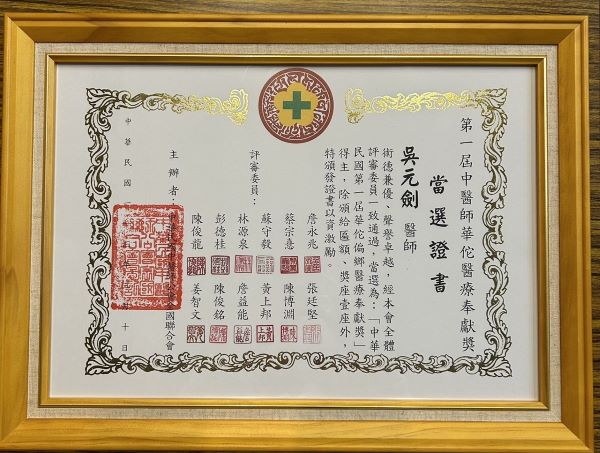 第一屆中醫師華佗醫療奉獻獎
當選證書
吳元劍 醫師
術德兼優、聲譽卓越，經本會全體
評審委員一致通過，當選為：「中華
民國第一屆華佗偏鄉醫療奉獻獎」
得主，除頒給匾額、獎座壹座外，
特頒發證書以資激勵。
評審委員：
詹永兆 張廷堅
蔡宗憲 陳博淵
蘇守毅 黃上邦
林源泉 詹益能
彭德桂 陳俊銘
陳俊龍 姜智文
主辦者：
國聯合會
中華民國
十日